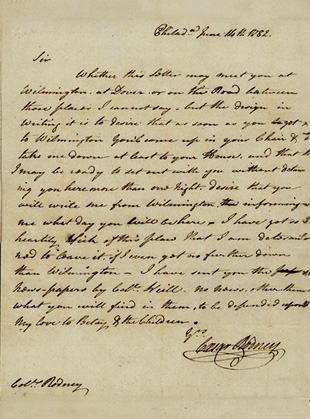 Philad.ª June 14th. 1782.
Sir
Whether this Letter may meet you at
Wilmington, at Dover, or on the Road between
those places I cannot say - but the design in
writing it is to desire that as soon as you get
to Wilmington You'l come up in your Chair &
take me down at least to your House, and that
I may be ready to set out with you without detain
ing you here more than one night. desire that you
will write me from Wilmington informing
me what day you will be here - I have got so
heartily sick of this place that I am determi
ned to leave it if I even got no further down
than Wilmington - I have sent you the
news-papers by Capt. Neill. no news other than
what you will find in them, to be depended upon
My love to Betsy, & the Children.
Yrs.
Caesar Rodney
Colo. Rodney